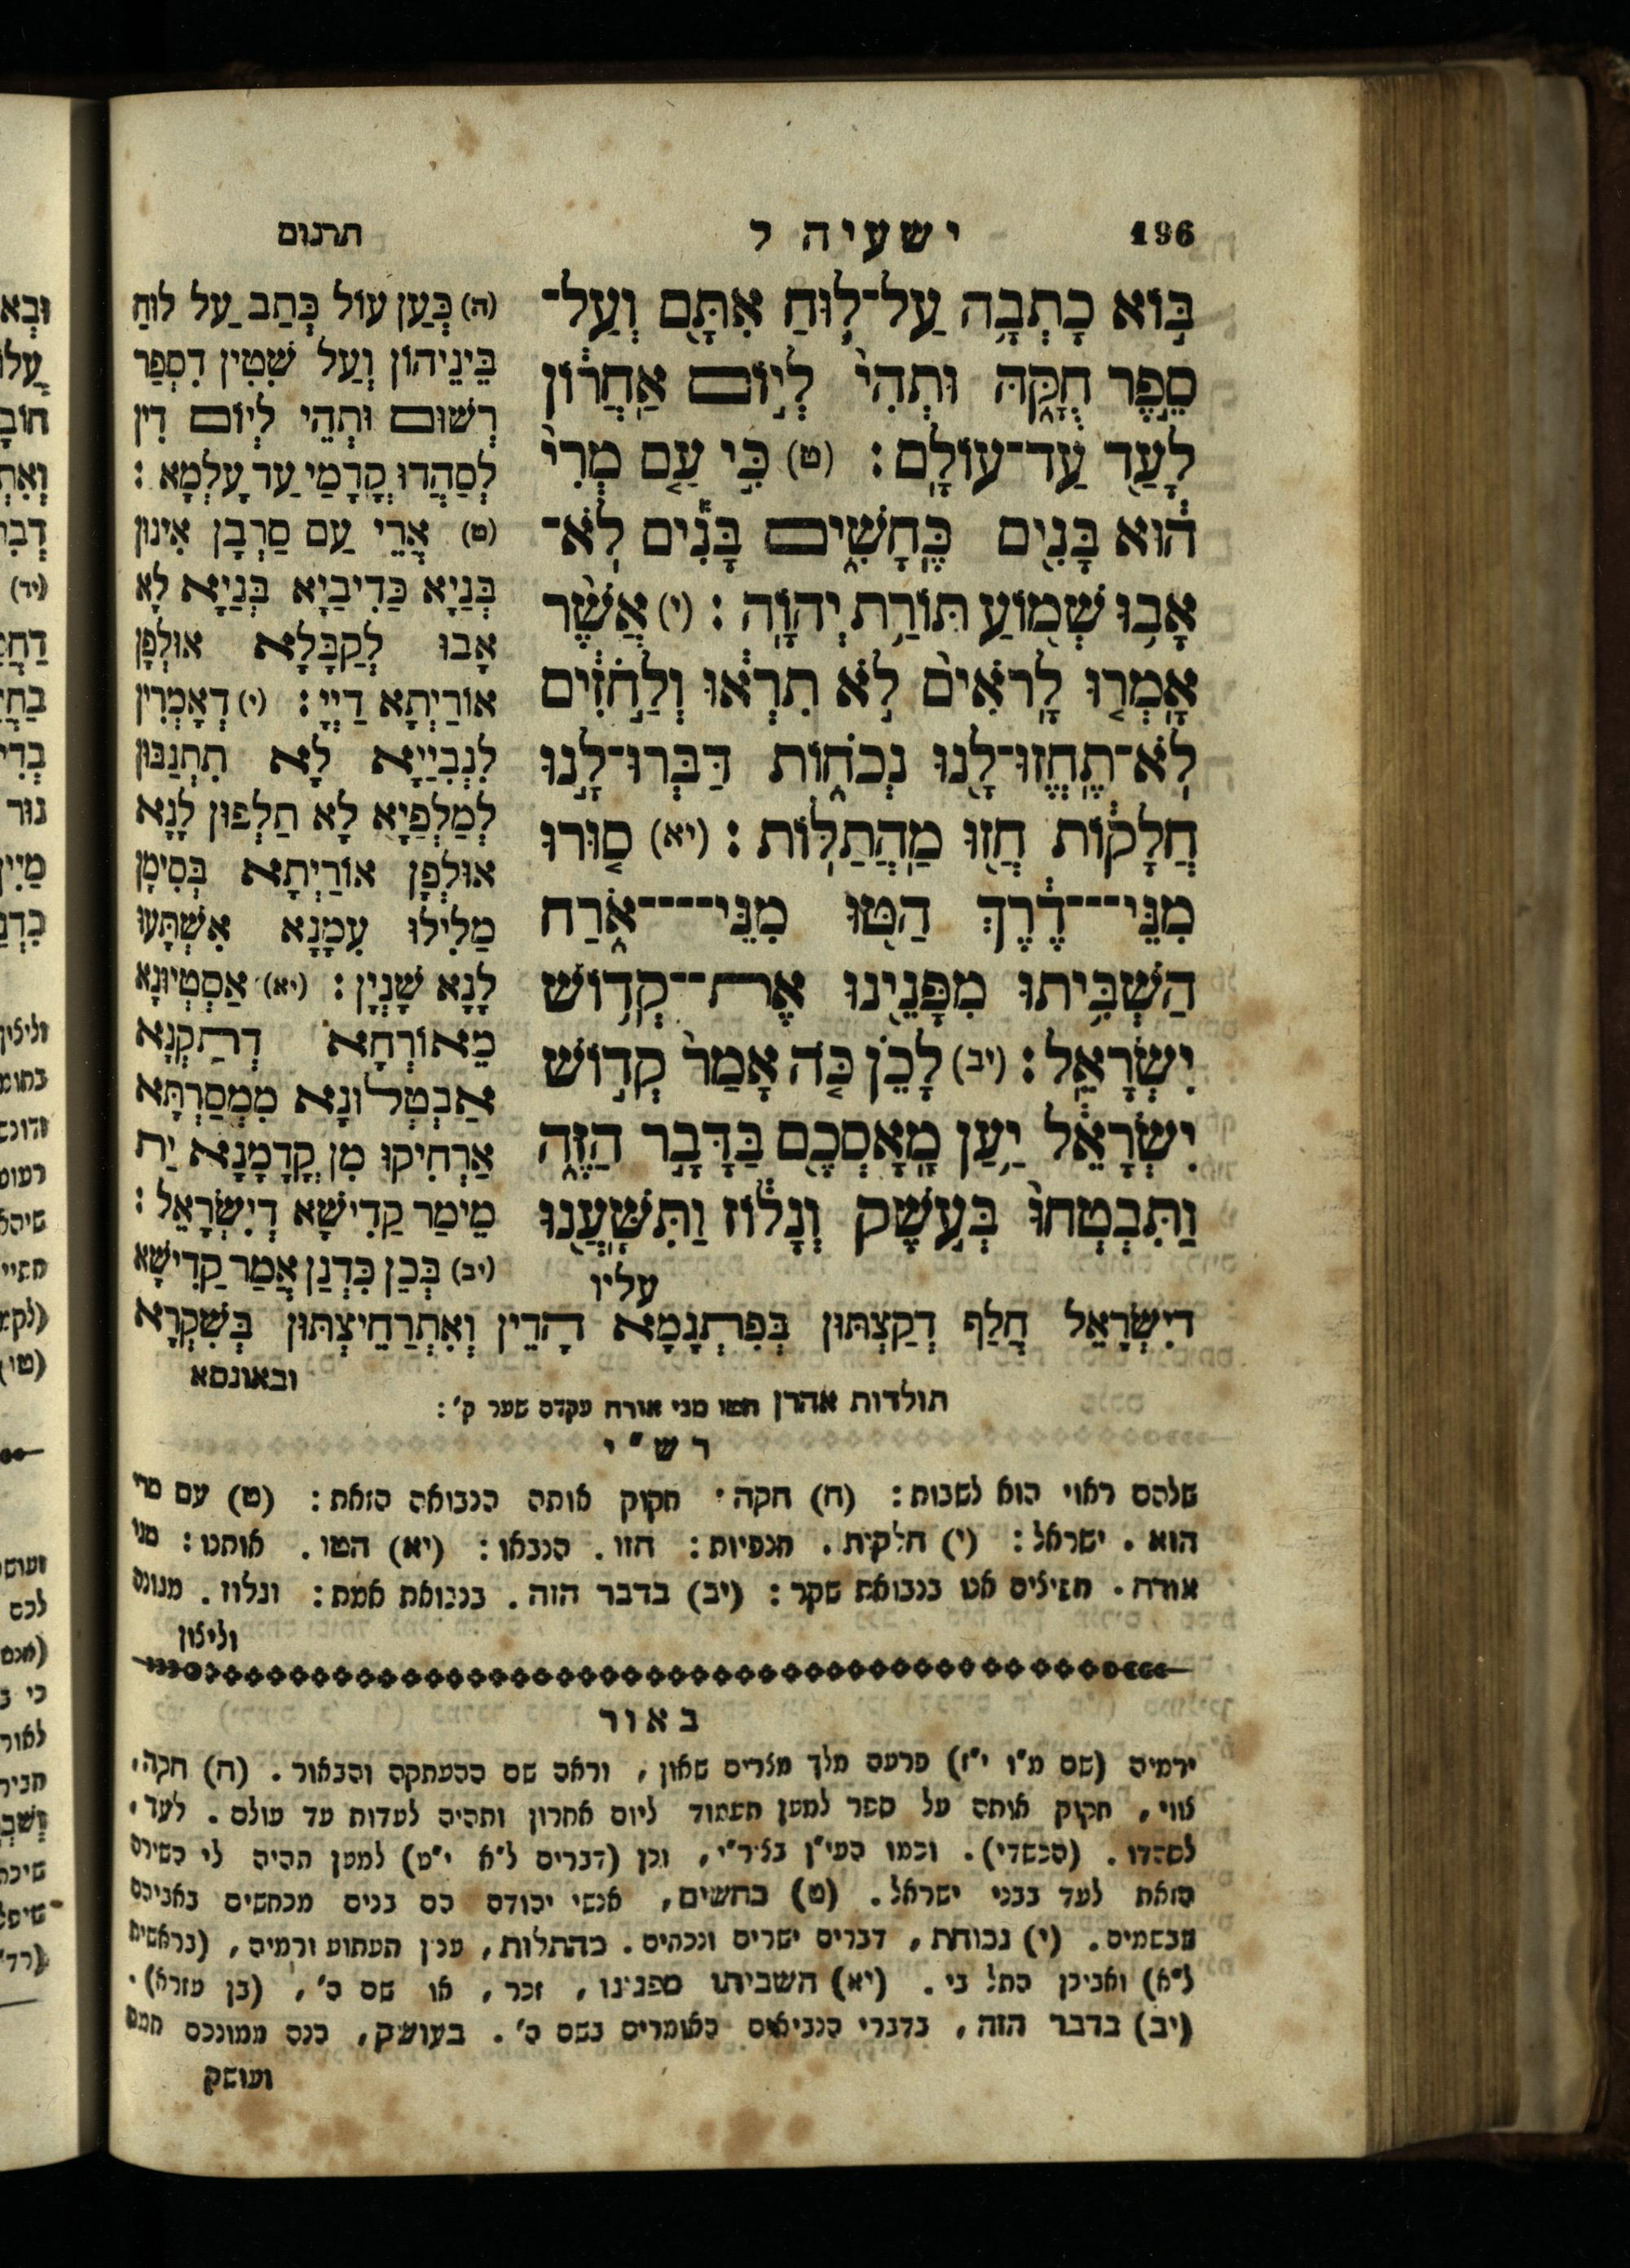 196
ישעיה ל
תרגום
בּ֣וֹא כָתְבָ֥הּ עַל־ל֛וּחַ אִתָּ֖ם וְעַל־
סֵ֣פֶר חֻקָּ֑הּ וּתְהִי֙ לְי֣וֹם אַֽחֲר֔וֹן
לָעַ֖ד עַד־עוֹלָֽם : (ט) כִּ֣י עַ֤ם מְרִי֙
ה֔וּא בָּנִ֖ים כֶּֽחָשִׁ֑ים בָּנִ֕ים לֹֽא־
אָב֥וּ שְׁמ֖וֹעַ תּוֹרַ֥ת יְהוָֹֽה : (י) אֲשֶׁ֨ר
אָֽמְר֤וּ לָֽרֹאִים֙ לֹ֣א תִרְא֔וּ וְלַ֣חֹזִ֔ים
לֹֽא־תֶֽחֱזוּ־לָ֖נוּ נְכֹח֑וֹת דַּבְּרוּ־לָ֣נוּ
חֲלָק֔וֹת חֲז֖וּ מַֽהֲתַלּֽוֹת : (יא) ס֚וּרוּ
מִנֵּי־דֶ֔רֶךְ הַטּ֖וּ מִנֵּי־אֹ֑רַח
הַשְׁבִּ֥יתוּ מִפָּנֵ֖ינוּ אֶת־קְד֥וֹשׁ
יִשְׂרָאֵֽל : (יב) לָכֵ֗ן כֹּ֤ה אָמַר֙ קְד֣וֹשׁ
יִשְׂרָאֵ֔ל יַ֥עַן מָֽאָסְכֶ֖ם בַּדָּבָ֣ר הַזֶּ֑ה
וַֽתִּבְטְחוּ֙ בְּעֹ֣שֶׁק וְנָל֔וֹז וַתִּשָּֽׁעֲנ֖וּ
עליו
(ח) כְּעַן עוֹל כְּתַב עַל לוּחַ
בֵּינֵיהוֹן וְעַל שִׁטִין דִסְפַר
רְשׁוּם וּתְהֵי לְיוֹם דִין
לְסַהֲדוּ קֳדָמַי עַד עָלְמָא :
(ט) אֲרֵי עַם סַרְבָן אִינוּן
בְּנַיָא כַּדִיבַיָא בְּנַיָא לָא
אָבוּ לְקַבָּלָא אוּלְפָן
אוֹרַיְתָא דַיְיָ : (י) דְאָמְרִין
לִנְבִיַיָא לָא תִתְנַבּוּן
לְמַלְפַיָא לָא תַלְפוּן לָנָא
אוּלְפָן אוֹרַיְתָא בְּסִימָן
מַלִילוּ עִמָנָא אִשְׁתָּעוּ
לָנָא שָׁנְיָן : (יא) אַסְטְיוּנָא
מֵאוֹרְחָא דְתַקְנָא
אַבְטְלוּנָא מִמְסַרְתָּא
אַרְחִיקוּ מִן קֳדָמָנָא יַת
מֵימַר קַדִישָׁא דְיִשְׂרָאֵל :
(יב) בְּכֵן כִּדְנַן אֲמַר קַדִישָׁא
דְיִשְׂרָאֵל חֲלַף דְקַצְתּוּן בְּפִתְגָמָא הָדֵין וְאִתְרַחֵיצְתּוּן בְּשִׁקְרָא
ובאונסא
תולדות אהרן הטו מני אורח עקדה שער ק׳ :
רש״י
שלהם ראוי הוא לשבות : (ח) חקה · חקוק אותה הנבואה הזאת : (ט) עם מרי
הוא . ישראל : (י) חלקות . חנפיות : חזו . הנבאו : (יא) הטו . אותנו : מני
אורח . מצילים אנו בנבואת שקר : (יב) בדבר הזה . בנבואת אמת : ונלוז . מגונה
וליצון
באור
ירמיה (שם מ״ו י״ז) פרעה מלך מצרים שאון , וראה שם ההעתקה והבאור . (ח) חקה ,
צווי , חקוק אותה על ספר למען תעמוד ליום אחרון ותהיה לעדות עד עולם . לעד ,
לסהדו . (הכשדי) . וכמו העי״ן בציר״י , וכן (דברים ל״א י״ט) למען תהיה לי השירה
הזאת לעד בבני ישראל . (ט) כחשים , אנשי יהודה הם בנים מכחשים באביהם
שבשמים . (י) נכוחת , דברים ישרים ונכהים . מהתלות , ענין תעתוע ורמיה , (בראשית
ל״א) ואביכן התל בי . (יא) השביתו מפנינו , זכר , או שם ה׳ , (בן עזרא) .
(יב) בדבר הזה , בדברי הנביאים האומרים בשם ה׳ . בעושק , הנה ממונכם חמס
ועושק